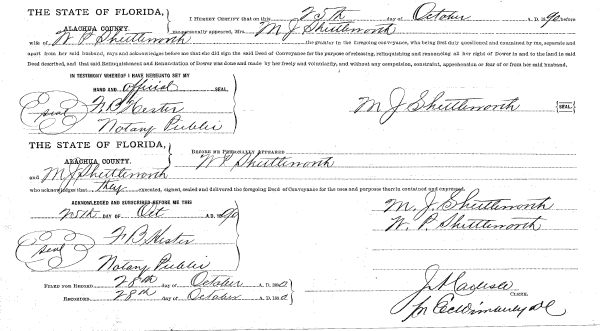 THE STATE OF FLORIDA,
ALACHUA COUNTY.
I HEREBY CERTIFY that on this 25th day of October A. D. 1890 before
me personally appeared, Mrs. M J Shuttleworth
wife of W. P. Shuttleworth the grantor in the foregoing conveyance, who being first duly questioned and examined by me, separate and
apart from her said husband, says and acknowledges before me that she did sign the said Deed of Conveyance for the purpose of releasing, relinquishing and renouncing all her right of Dower in and to the land in said
Deed described, and that said Relinquishment and Renunciation of Dower was done and made by her freely and voluntarily, and without any compulsion, constraint, apprehension or fear of or from her said husband.
IN TESTIMONY WHEREOF I HAVE HEREUNTO SET MY
HAND AND official SEAL,
seal F. B Hester
Notary Public
M J Shuttleworth {SEAL}
THE STATE OF FLORIDA,
ALACHUA COUNTY.
BEFORE ME PERSONALLY APPEARED W P Shuttleworth
and M J Shuttleworth
who acknowledge that they executed, signed, sealed and delivered the foregoing Deed of Conveyance for the uses and purposes therein contained and expressed.
ACKNOWLEDGED AND SUBSCRIBED BEFORE ME THIS
25th DAY OF Oct A. D. 1890
seal F. B Hester
Notary Public
M. J. Shuttleworth
W. P. Shuttleworth
FILED FOR RECORD 28th day of October A. D. 1890
RECORDED 28th day of October A. D. 1890
CLERK.